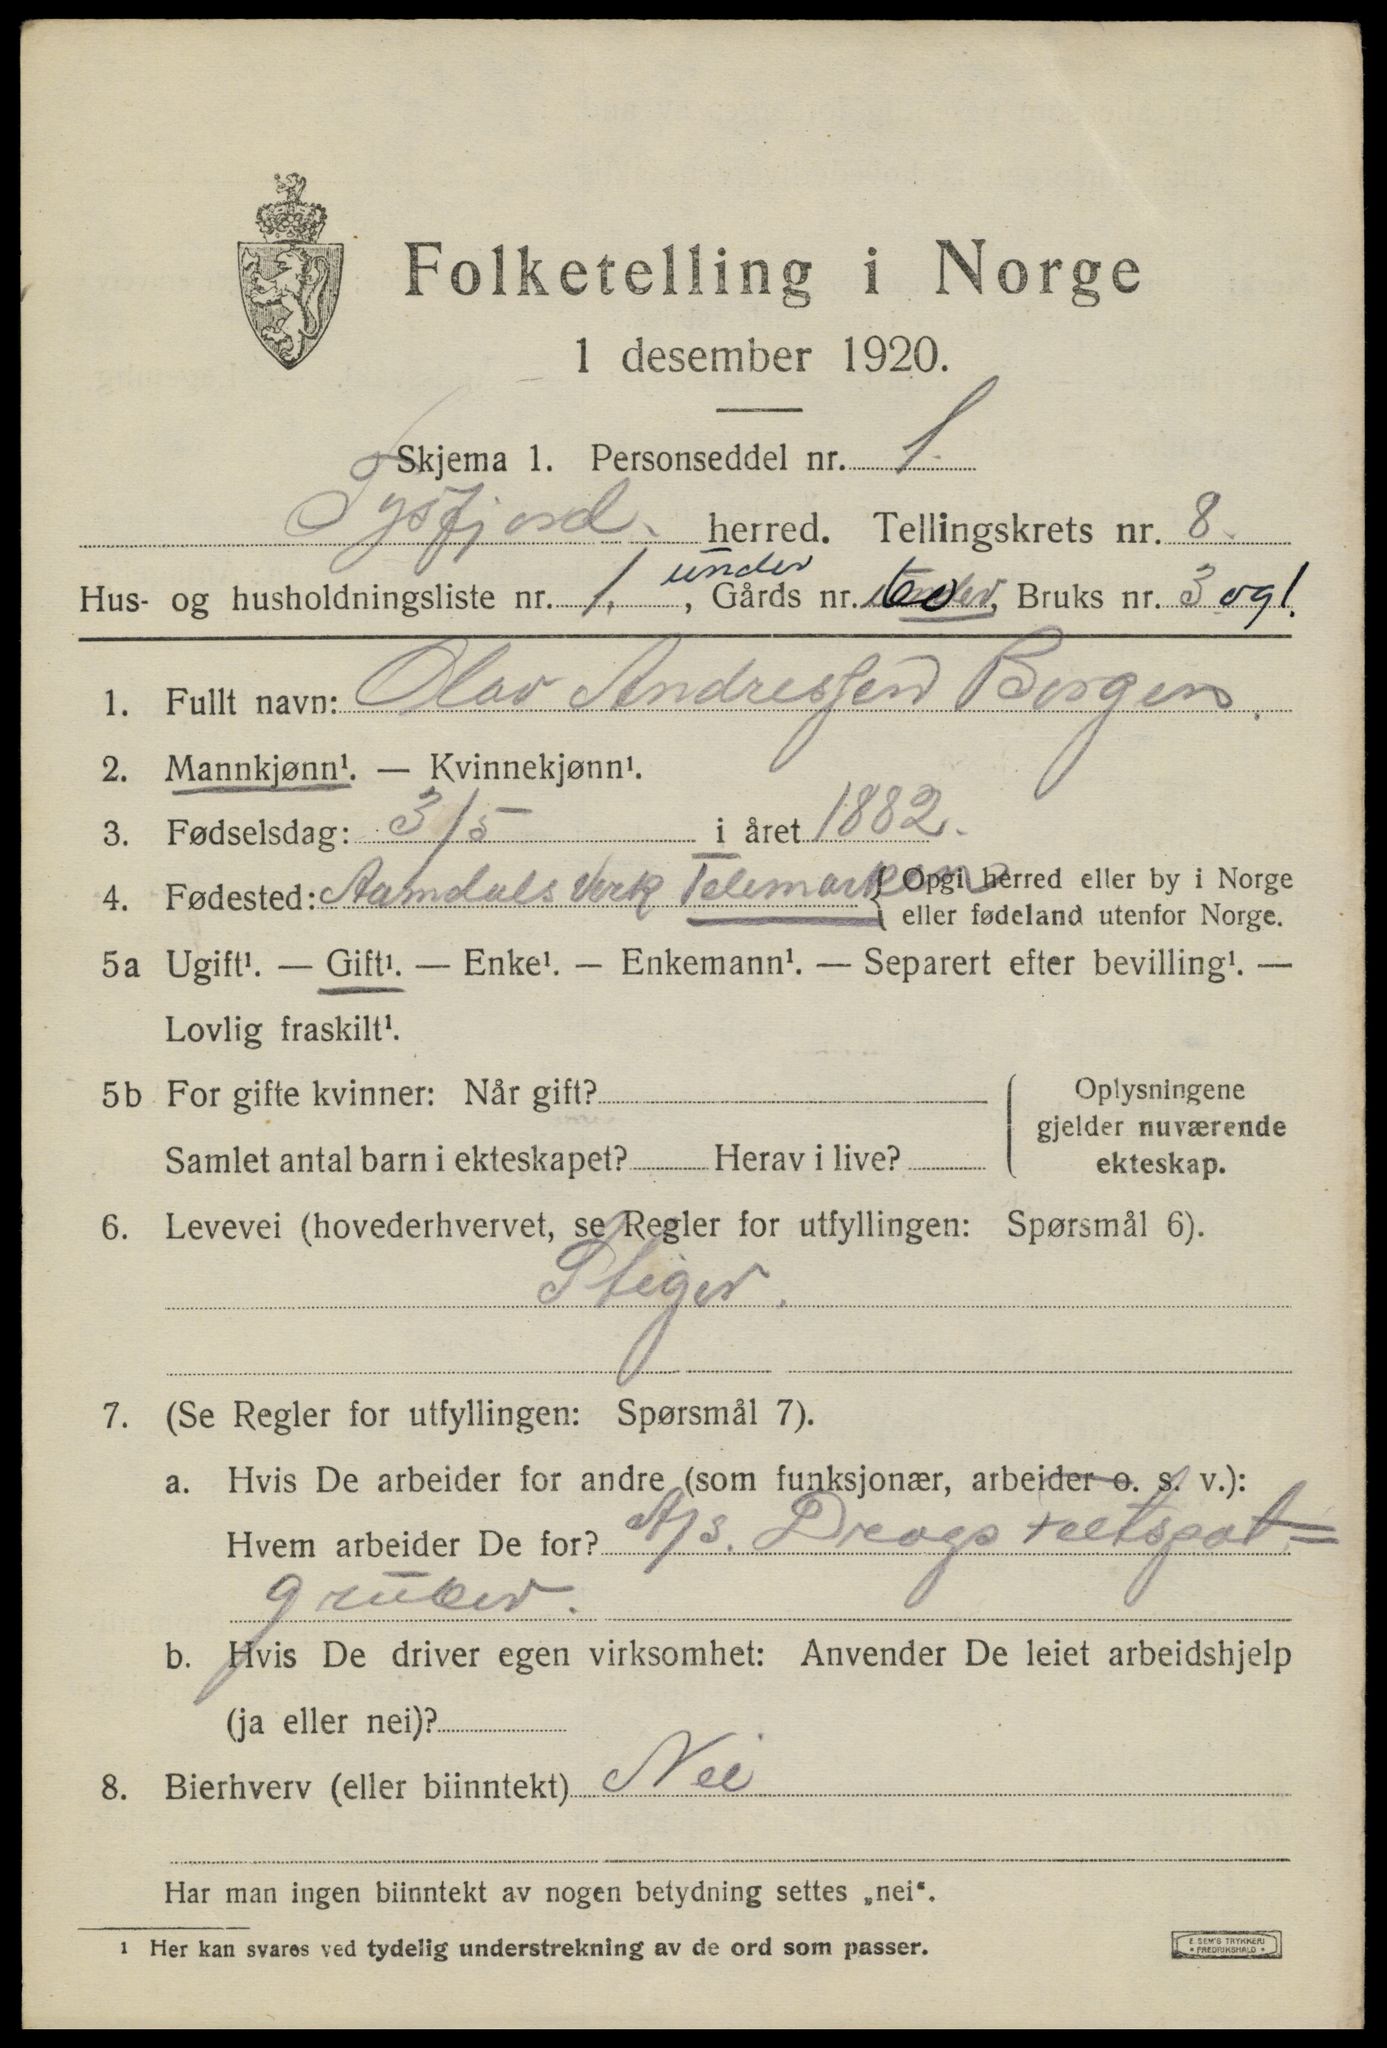 Folketelling i Norge
1 desember 1920.
Skjema 1. Personseddel nr. 1.
Tysfjord. herred. Tellingskrets nr. 8.
Hus- og husholdningsliste nr. 1. under, Gårds nr. 60, Bruks nr. 3 og 1.
1. Fullt navn: Olav Andressen Borgen.
2. Mannkjønn¹. — Kvinnekjønn¹.
3. Fødselsdag: 3/5 i året 1882.
4. Fødested: Aamdals Verk Telemarken {Opgi herred eller by i Norge
eller fødeland utenfor Norge.
5a Ugift¹. — Gift¹. — Enke¹. — Enkemann¹. — Separert efter bevilling¹. —
Lovlig fraskilt¹.
5b For gifte kvinner: Når gift?
Samlet antal barn i ekteskapet? Herav i live?
Oplysningene
gjelder nuværende
ekteskap.
6. Levevei (hovederhvervet, se Regler for utfyllingen: Spørsmål 6).
Stiger.
7. (Se Regler for utfyllingen: Spørsmål 7).
a. Hvis De arbeider for andre (som funksjonær, arbeider o. s. v.):
Hvem arbeider De for? A/S. Drags Feltspat=
gruber.
b. Hvis De driver egen virksomhet: Anvender De leiet arbeidshjelp
(ja eller nei)?
8. Bierhverv (eller biinntekt) Nei
Har man ingen biinntekt av nogen betydning settes „nei“.
¹ Her kan svares ved tydelig understrekning av de ord som passer.
E. SEM'S TRYKKERI
• FREDRIKSHALD •